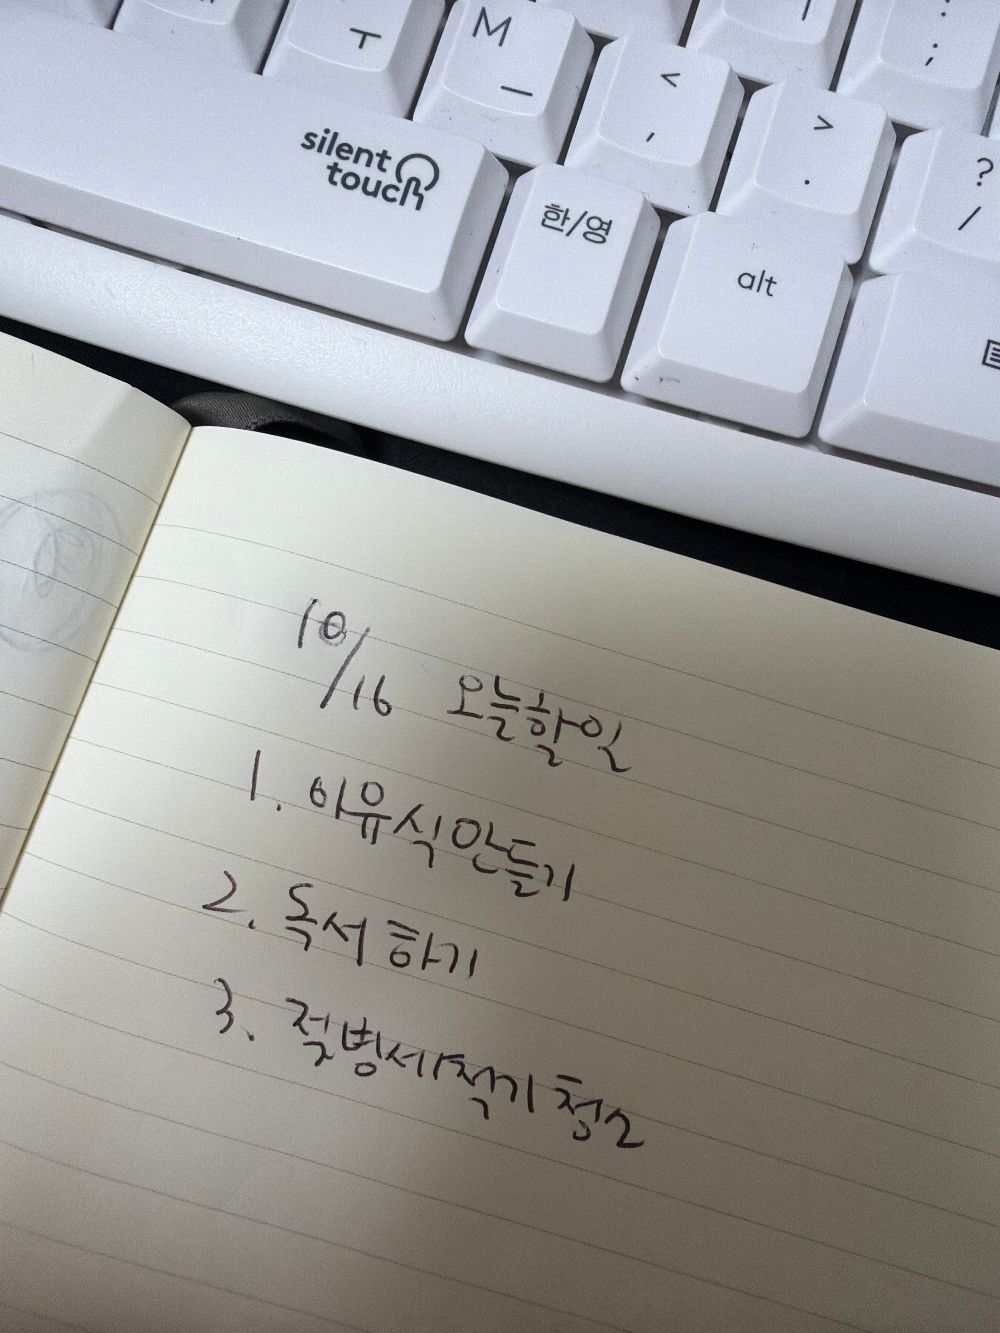 ㅜ
M
ㅡ
<
,
>
.
?
/
:
;
silent
touch
한/영
alt
10/16 오늘할일
1. 이유식만들기
2. 독서하기
3. 젖병세척기 청소